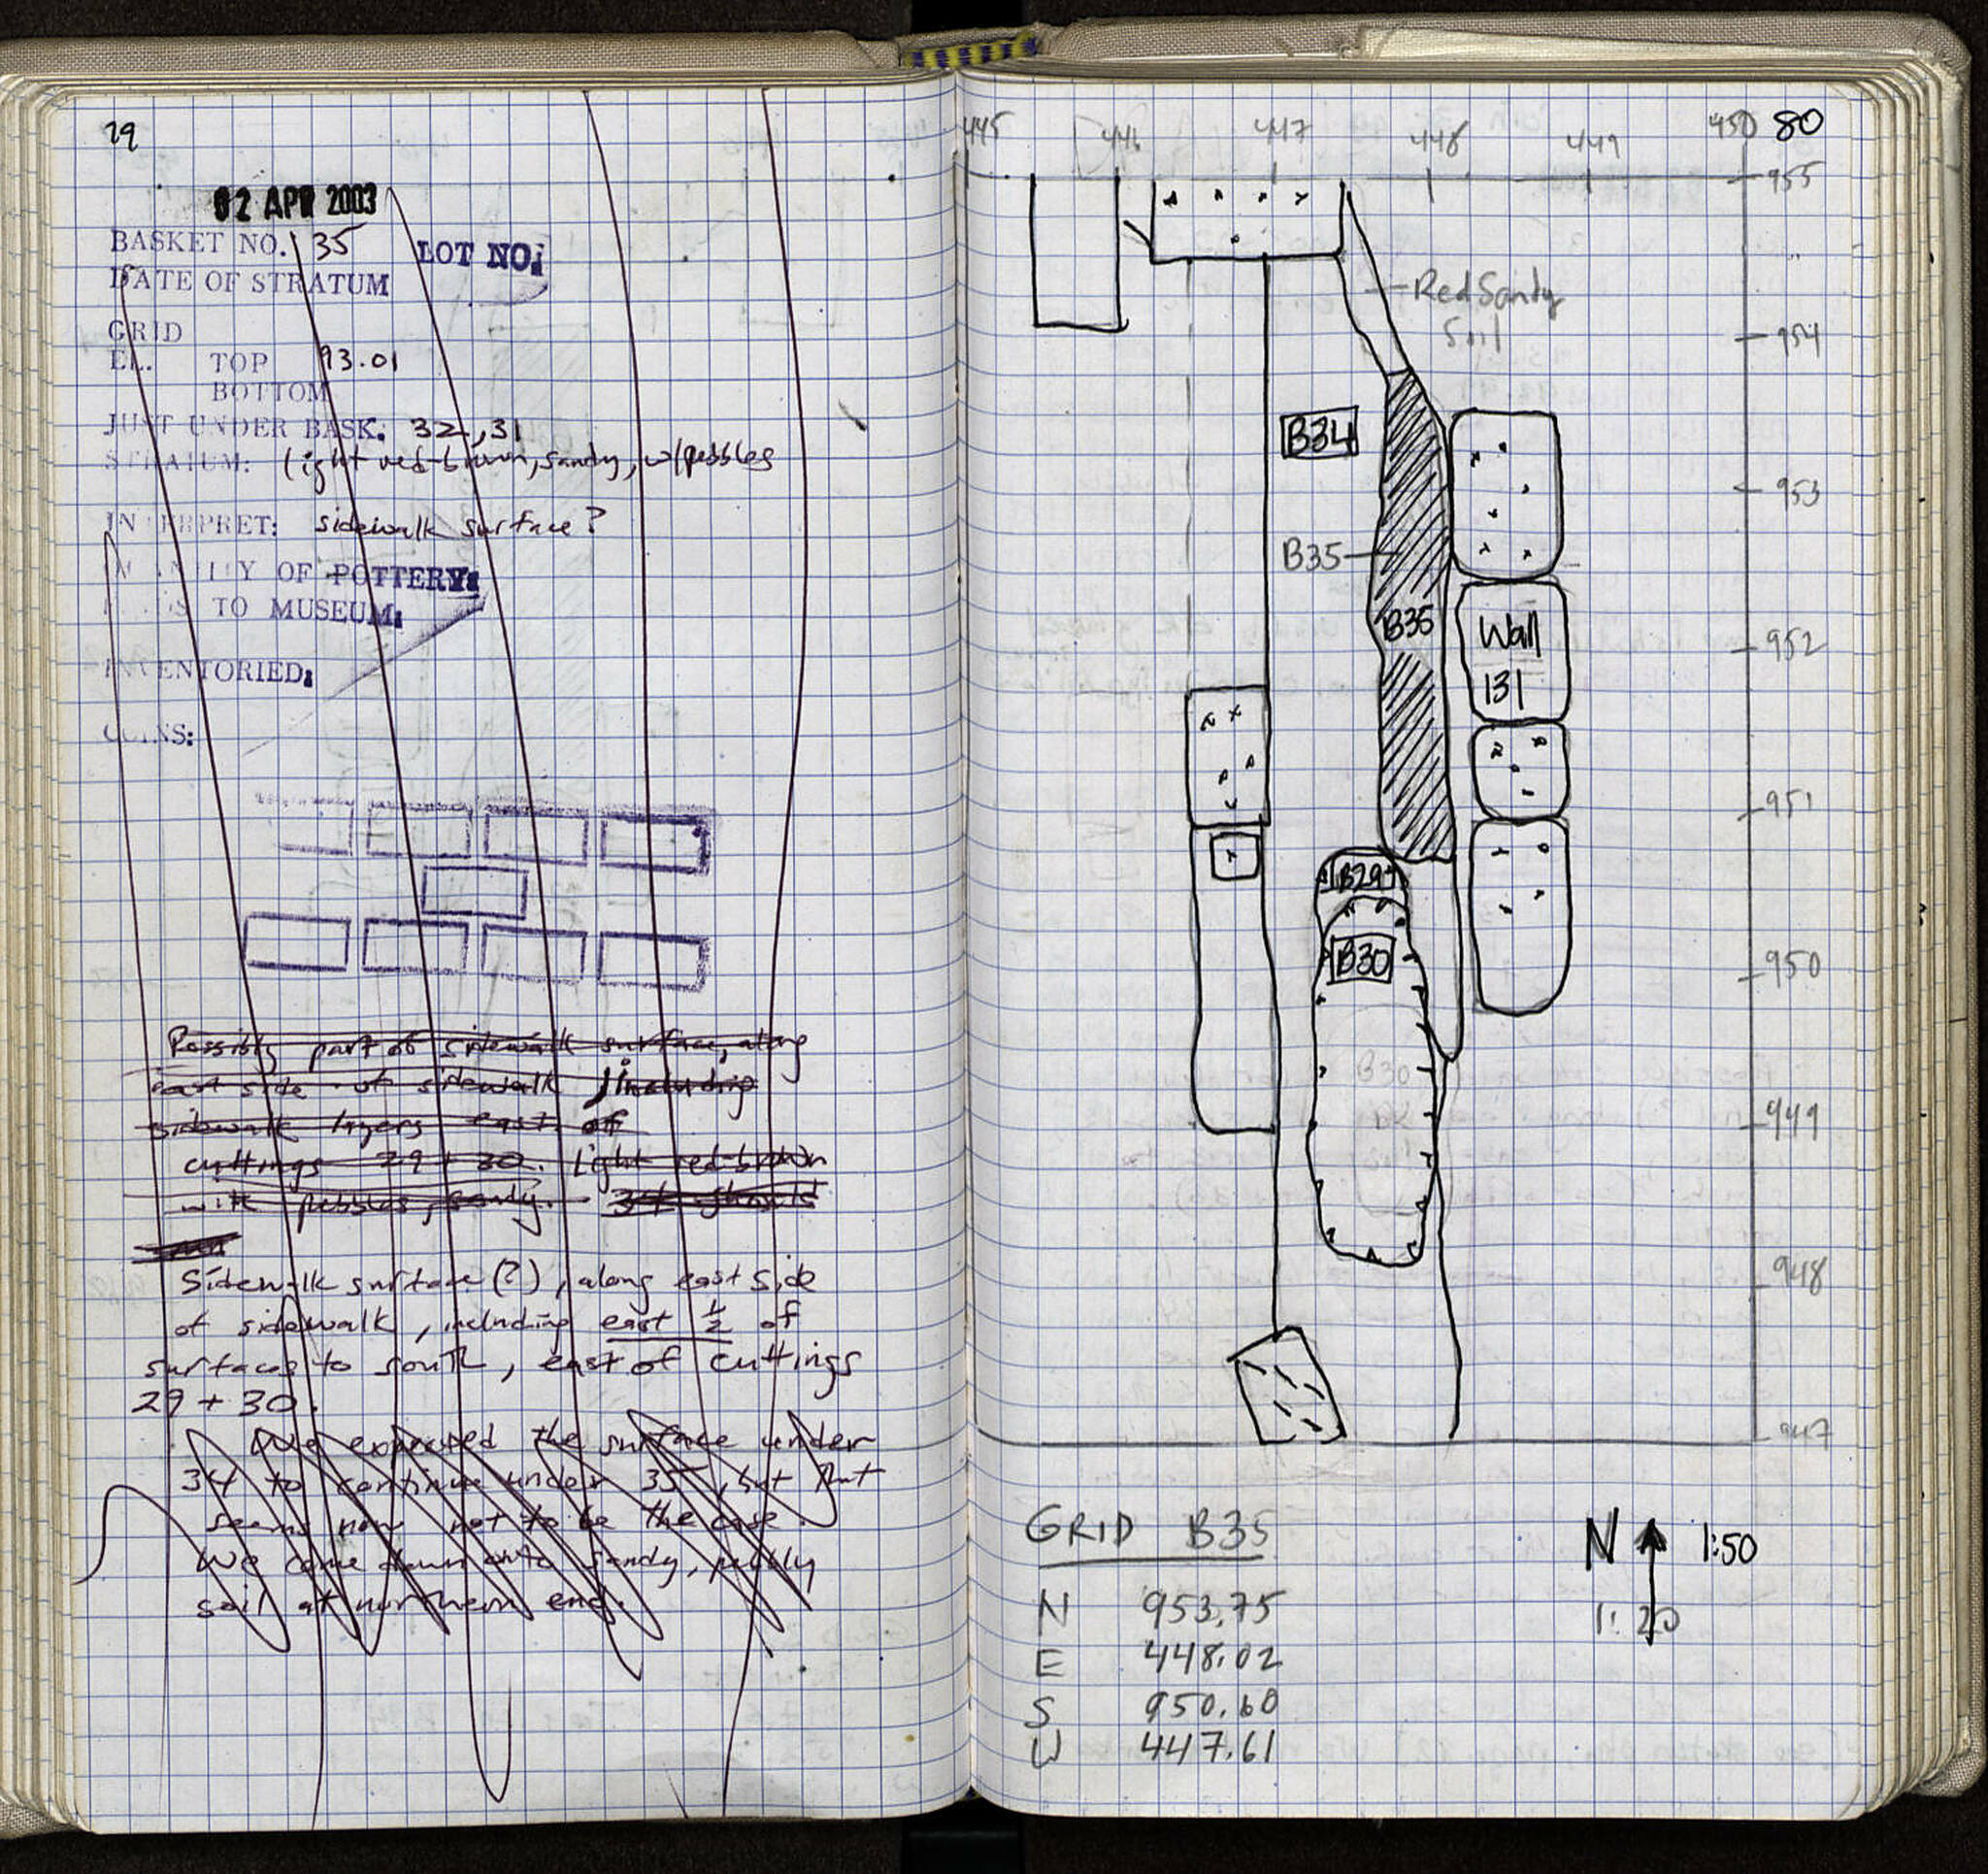 79
02 APR 2003
BASKET NO. 35 LOT NO:
DATE OF STRATUM
GRID
EL. TOP 93.01
BOTTOM
JUST UNDER BASK: 32, 31
STRATUM: light red-brown, sandy, w/pebbles
INTERPRET: sidewalk surface?
QUANTITY OF POTTERY:
TO MUSEUM:
INVENTORIED:
COINS:
Possibly part of sidewalk surface, along
east side of sidewalk, including
sidewalk layers east of
cuttings 29 + 30. Light red-brown
with pebbles, sandy. 34 should
Sidewalk surface (?), along east side
of sidewalk, including east 1/2 of
surfaces to south, east of cuttings
29 + 30.
We expected the surface under
34 to continue under 35, but that
seems now not to be the case.
We came down onto sandy, pebbly
soil at northern end.
80
445 446 447 448 449 450
955
Red Sandy
Soil
954
B34
953
B35
B35
952
Wall
131
951
B29
B30
950
B30
949
948
947
GRID B35
N 953.75
E 448.02
S 950.60
W 447.61
N 1:50
1:20